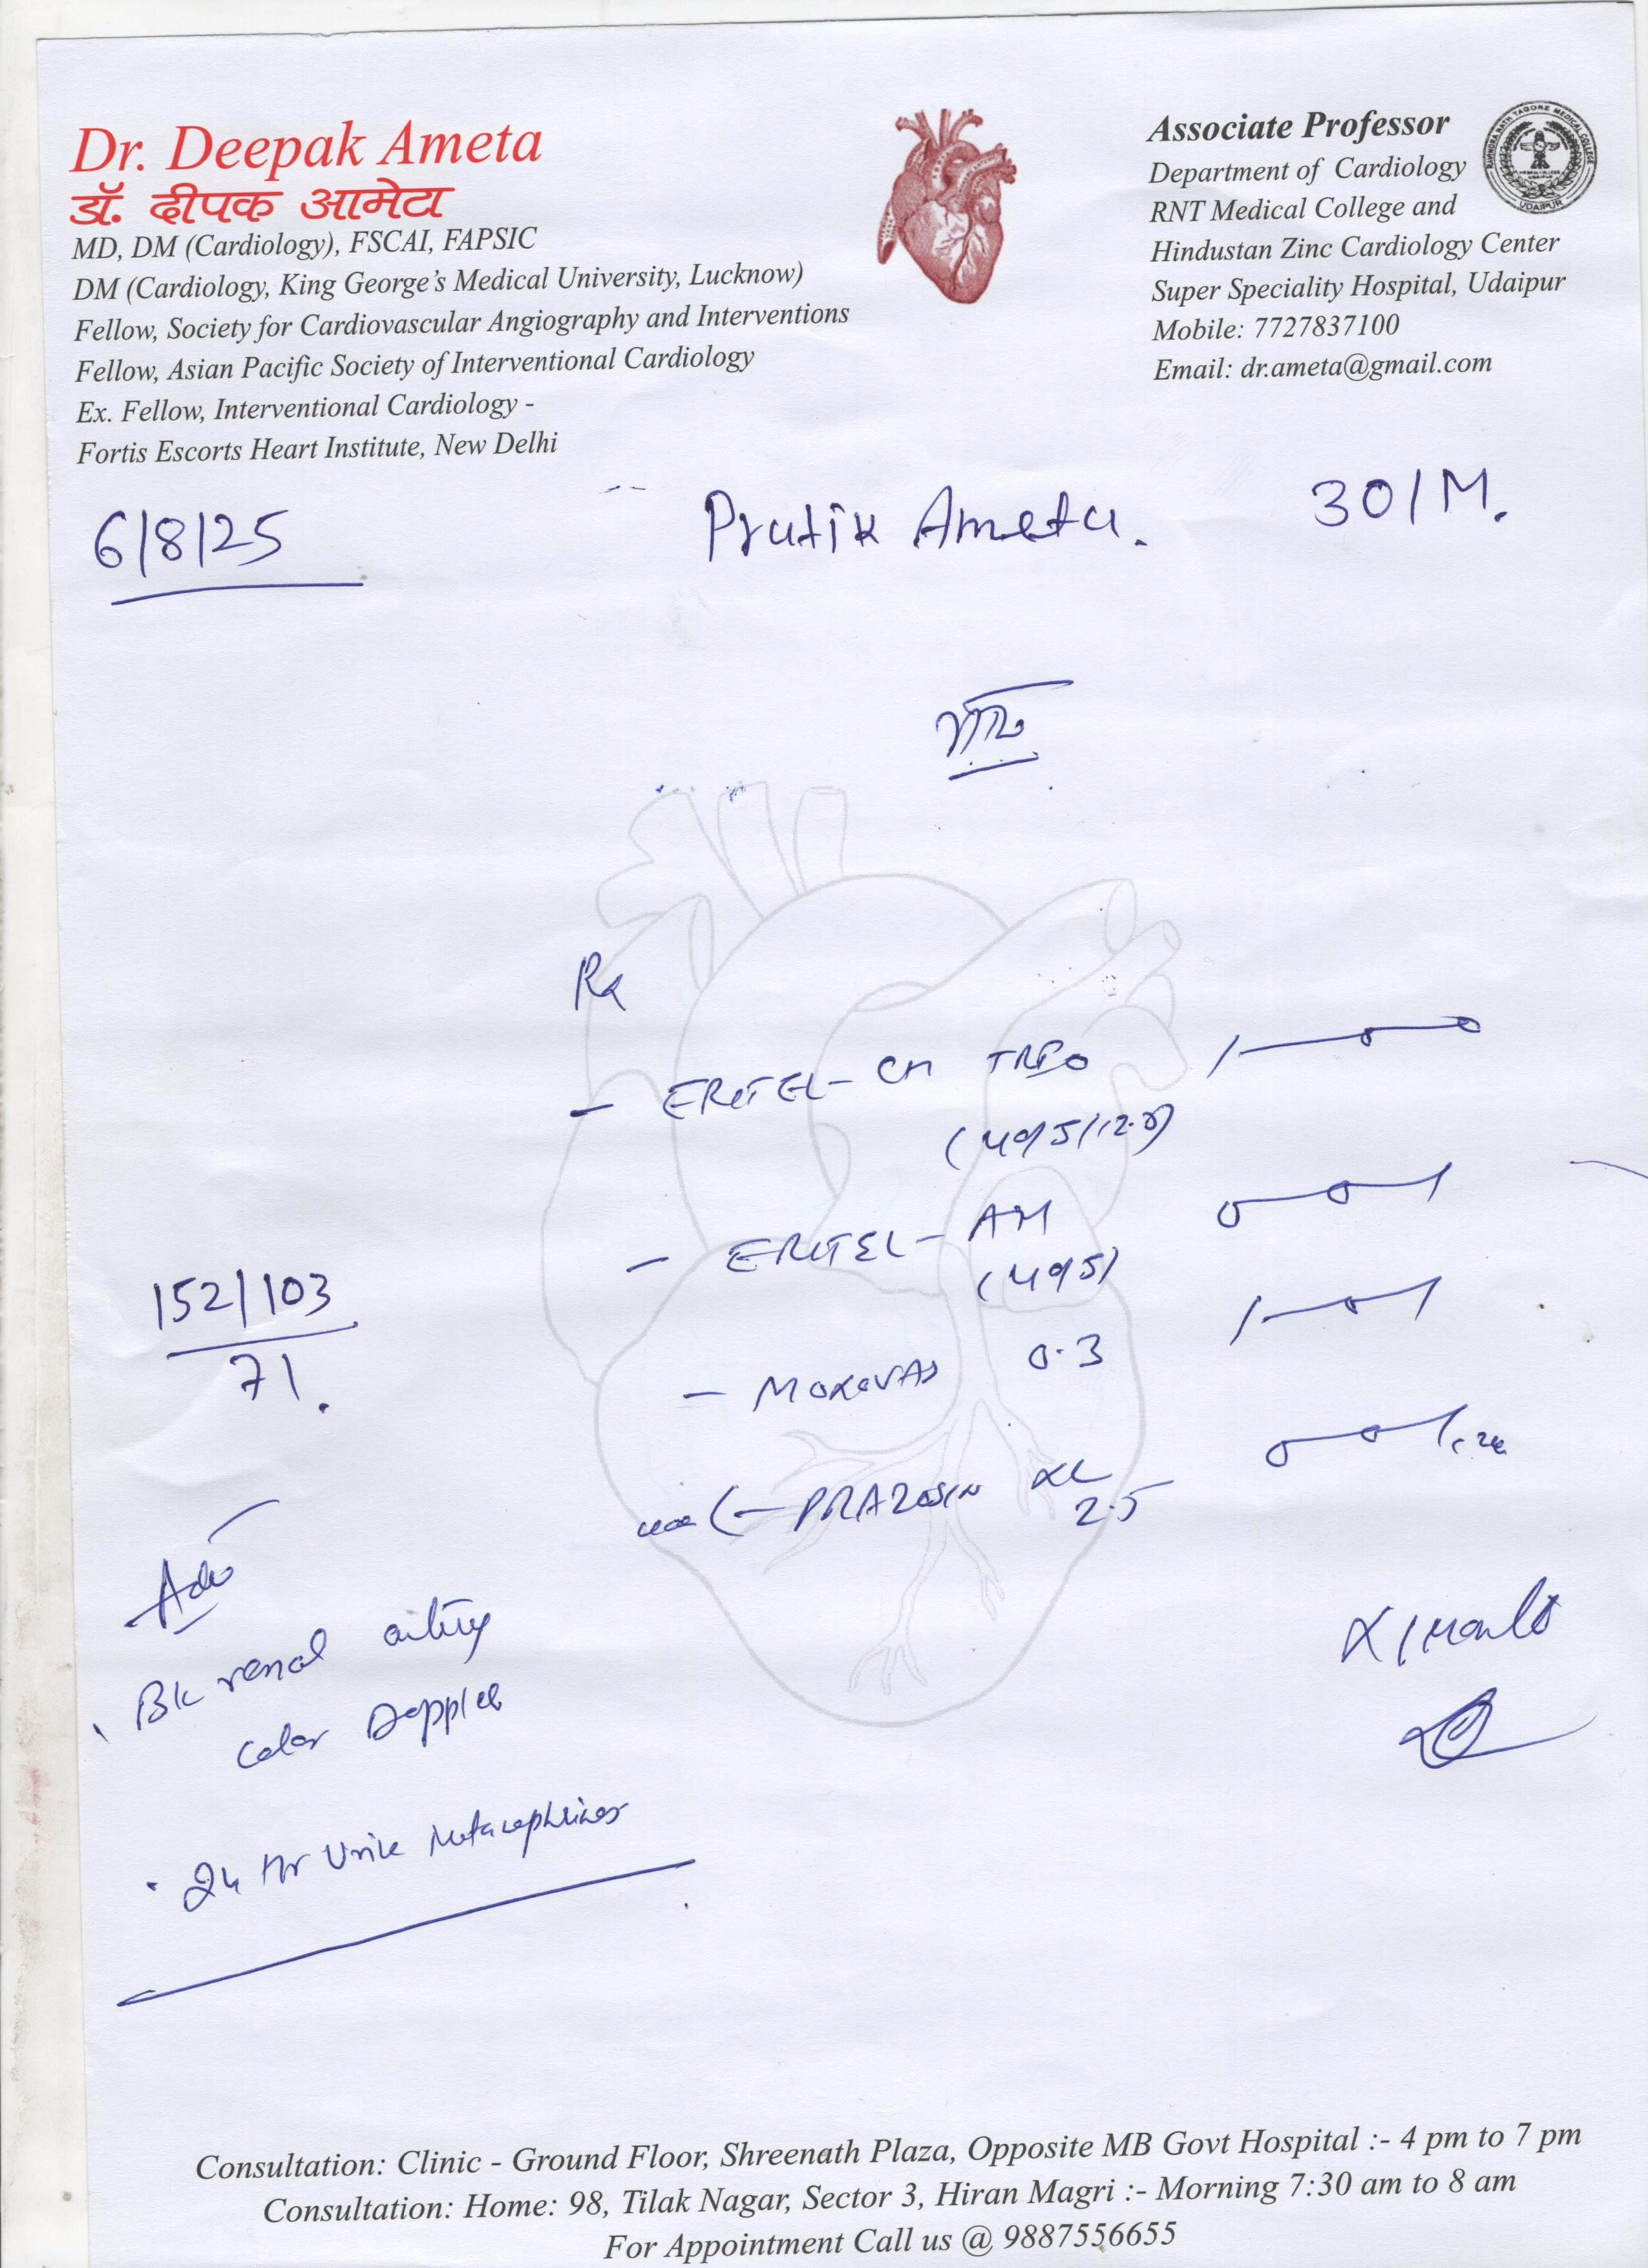 Dr. Deepak Ameta
डॉ. दीपक आमेटा
MD, DM (Cardiology), FSCAI, FAPSIC
DM (Cardiology, King George's Medical University, Lucknow)
Fellow, Society for Cardiovascular Angiography and Interventions
Fellow, Asian Pacific Society of Interventional Cardiology
Ex. Fellow, Interventional Cardiology -
Fortis Escorts Heart Institute, New Delhi
Associate Professor
Department of Cardiology
RNT Medical College and
Hindustan Zinc Cardiology Center
Super Speciality Hospital, Udaipur
Mobile: 7727837100
Email: dr.ameta@gmail.com
6/8/25
Pratik Ameta.
30/M.
Rx
- ERITEL - CH TRIO
(40/5/12.5)
- ERITEL - AM
(40/5)
- MOXOVAS 0.3
- PRAZOSIN XL
2.5
152/103
71.
Adv
Renal artery
Color Doppler
24 Hr Urine Metanephrines
X 1 Month
Consultation: Clinic - Ground Floor, Shreenath Plaza, Opposite MB Govt Hospital :- 4 pm to 7 pm
Consultation: Home: 98, Tilak Nagar, Sector 3, Hiran Magri :- Morning 7:30 am to 8 am
For Appointment Call us @ 9887556655